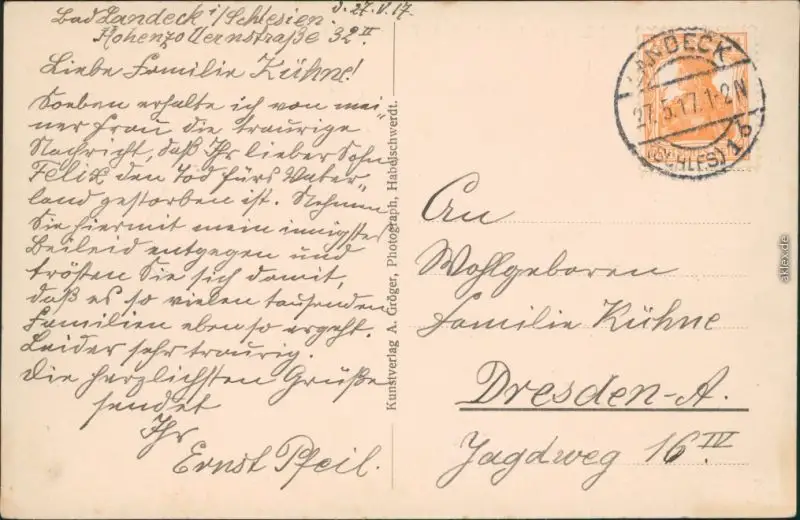 Bad Landeck i/Schlesien. d. 27.V.17.
Hohenzollernstraße 32 II.
Liebe Familie Kühne!
Soeben erhalte ich von mei-
ner Frau die traurige
Nachricht, daß Ihr lieber Sohn
Felix den Tod fürs Vater-
land gestorben ist. Nehmen
Sie hiermit mein innigstes
Beileid entgegen und
trösten Sie sich damit,
daß es so vielen tausenden
Familien ebenso ergeht.
Leider sehr traurig.
Die herzlichsten Grüße
sendet
Ihr
Ernst Pfeil.
Kunstverlag A. Gröger, Photograph, Habelschwerdt.
LANDECK
27.5.17.1-2N
(SCHLES) 1b
An
Wohlgeboren
Familie Kühne
Dresden-A.
Jagdweg 16 IV.
aklex.de